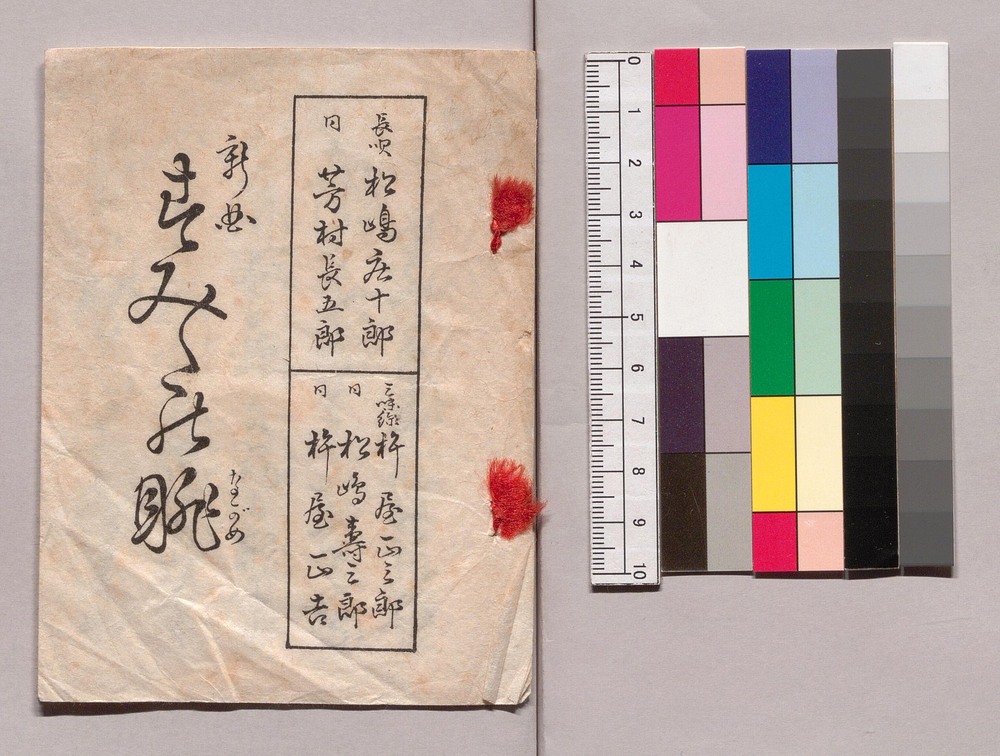 長唄 松嶋庄十郎
同 芳村長五郎
三味線 杵屋正三郎
同 松嶋寿三郎
同 杵屋正吉
新曲
すみ〳〵の眺
ながめ
0
1
2
3
4
5
6
7
8
9
10